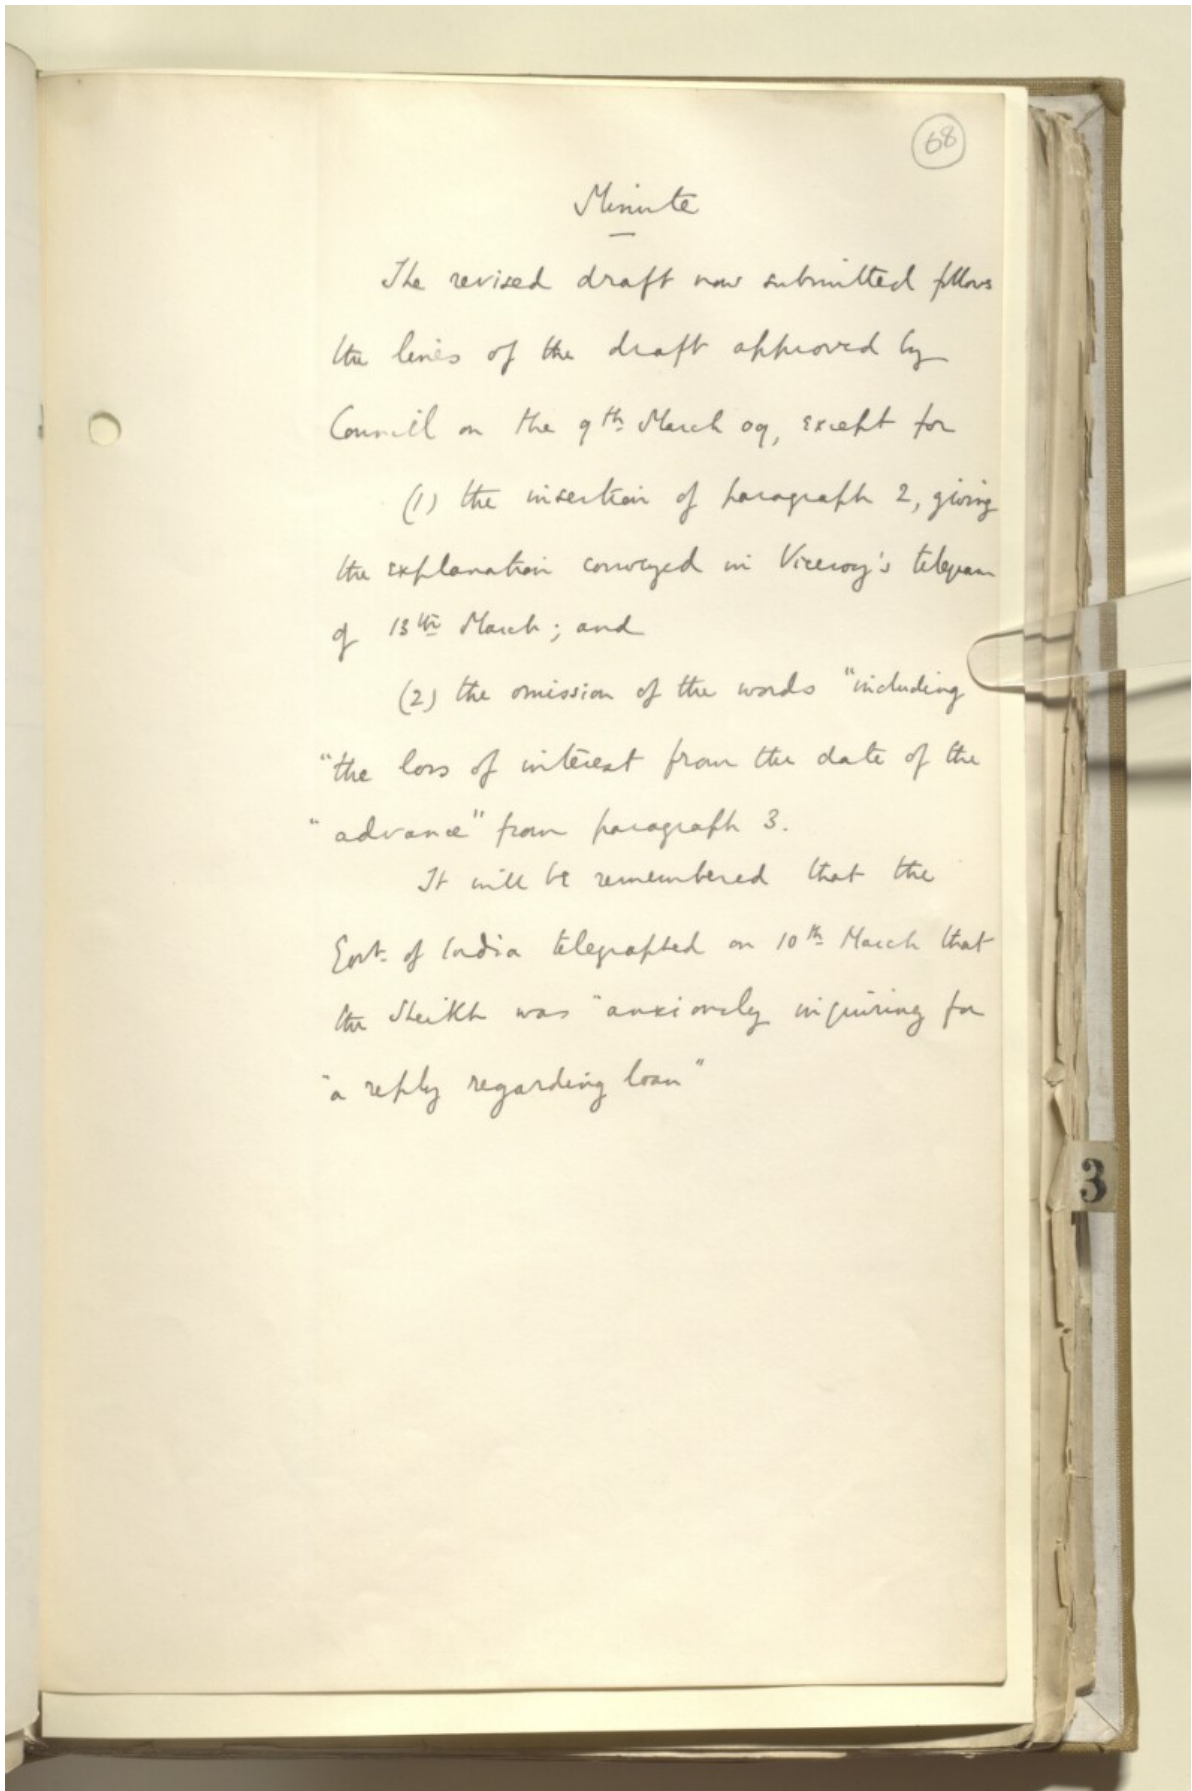 68
Minute
The revised draft now submitted follows
the lines of the draft approved by
Council on the 9th March 09, except for
(1) the insertion of paragraph 2, giving
the explanation conveyed in Viceroy's telegram
of 13th March; and
(2) the omission of the words "including
"the loss of interest from the date of the
"advance" from paragraph 3.
It will be remembered that the
Govt. of India telegraphed on 10th March that
the Sheikh was "anxiously inquiring for
"a reply regarding loan"
3